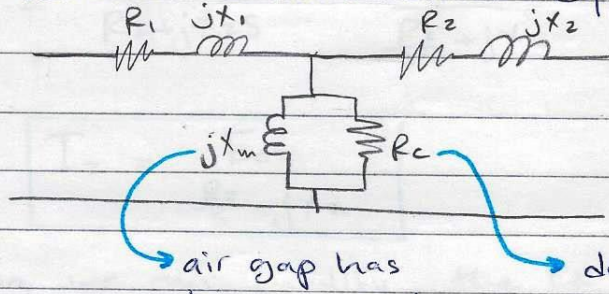 R1 jx1 R2 jx2
jxm Rc
air gap has